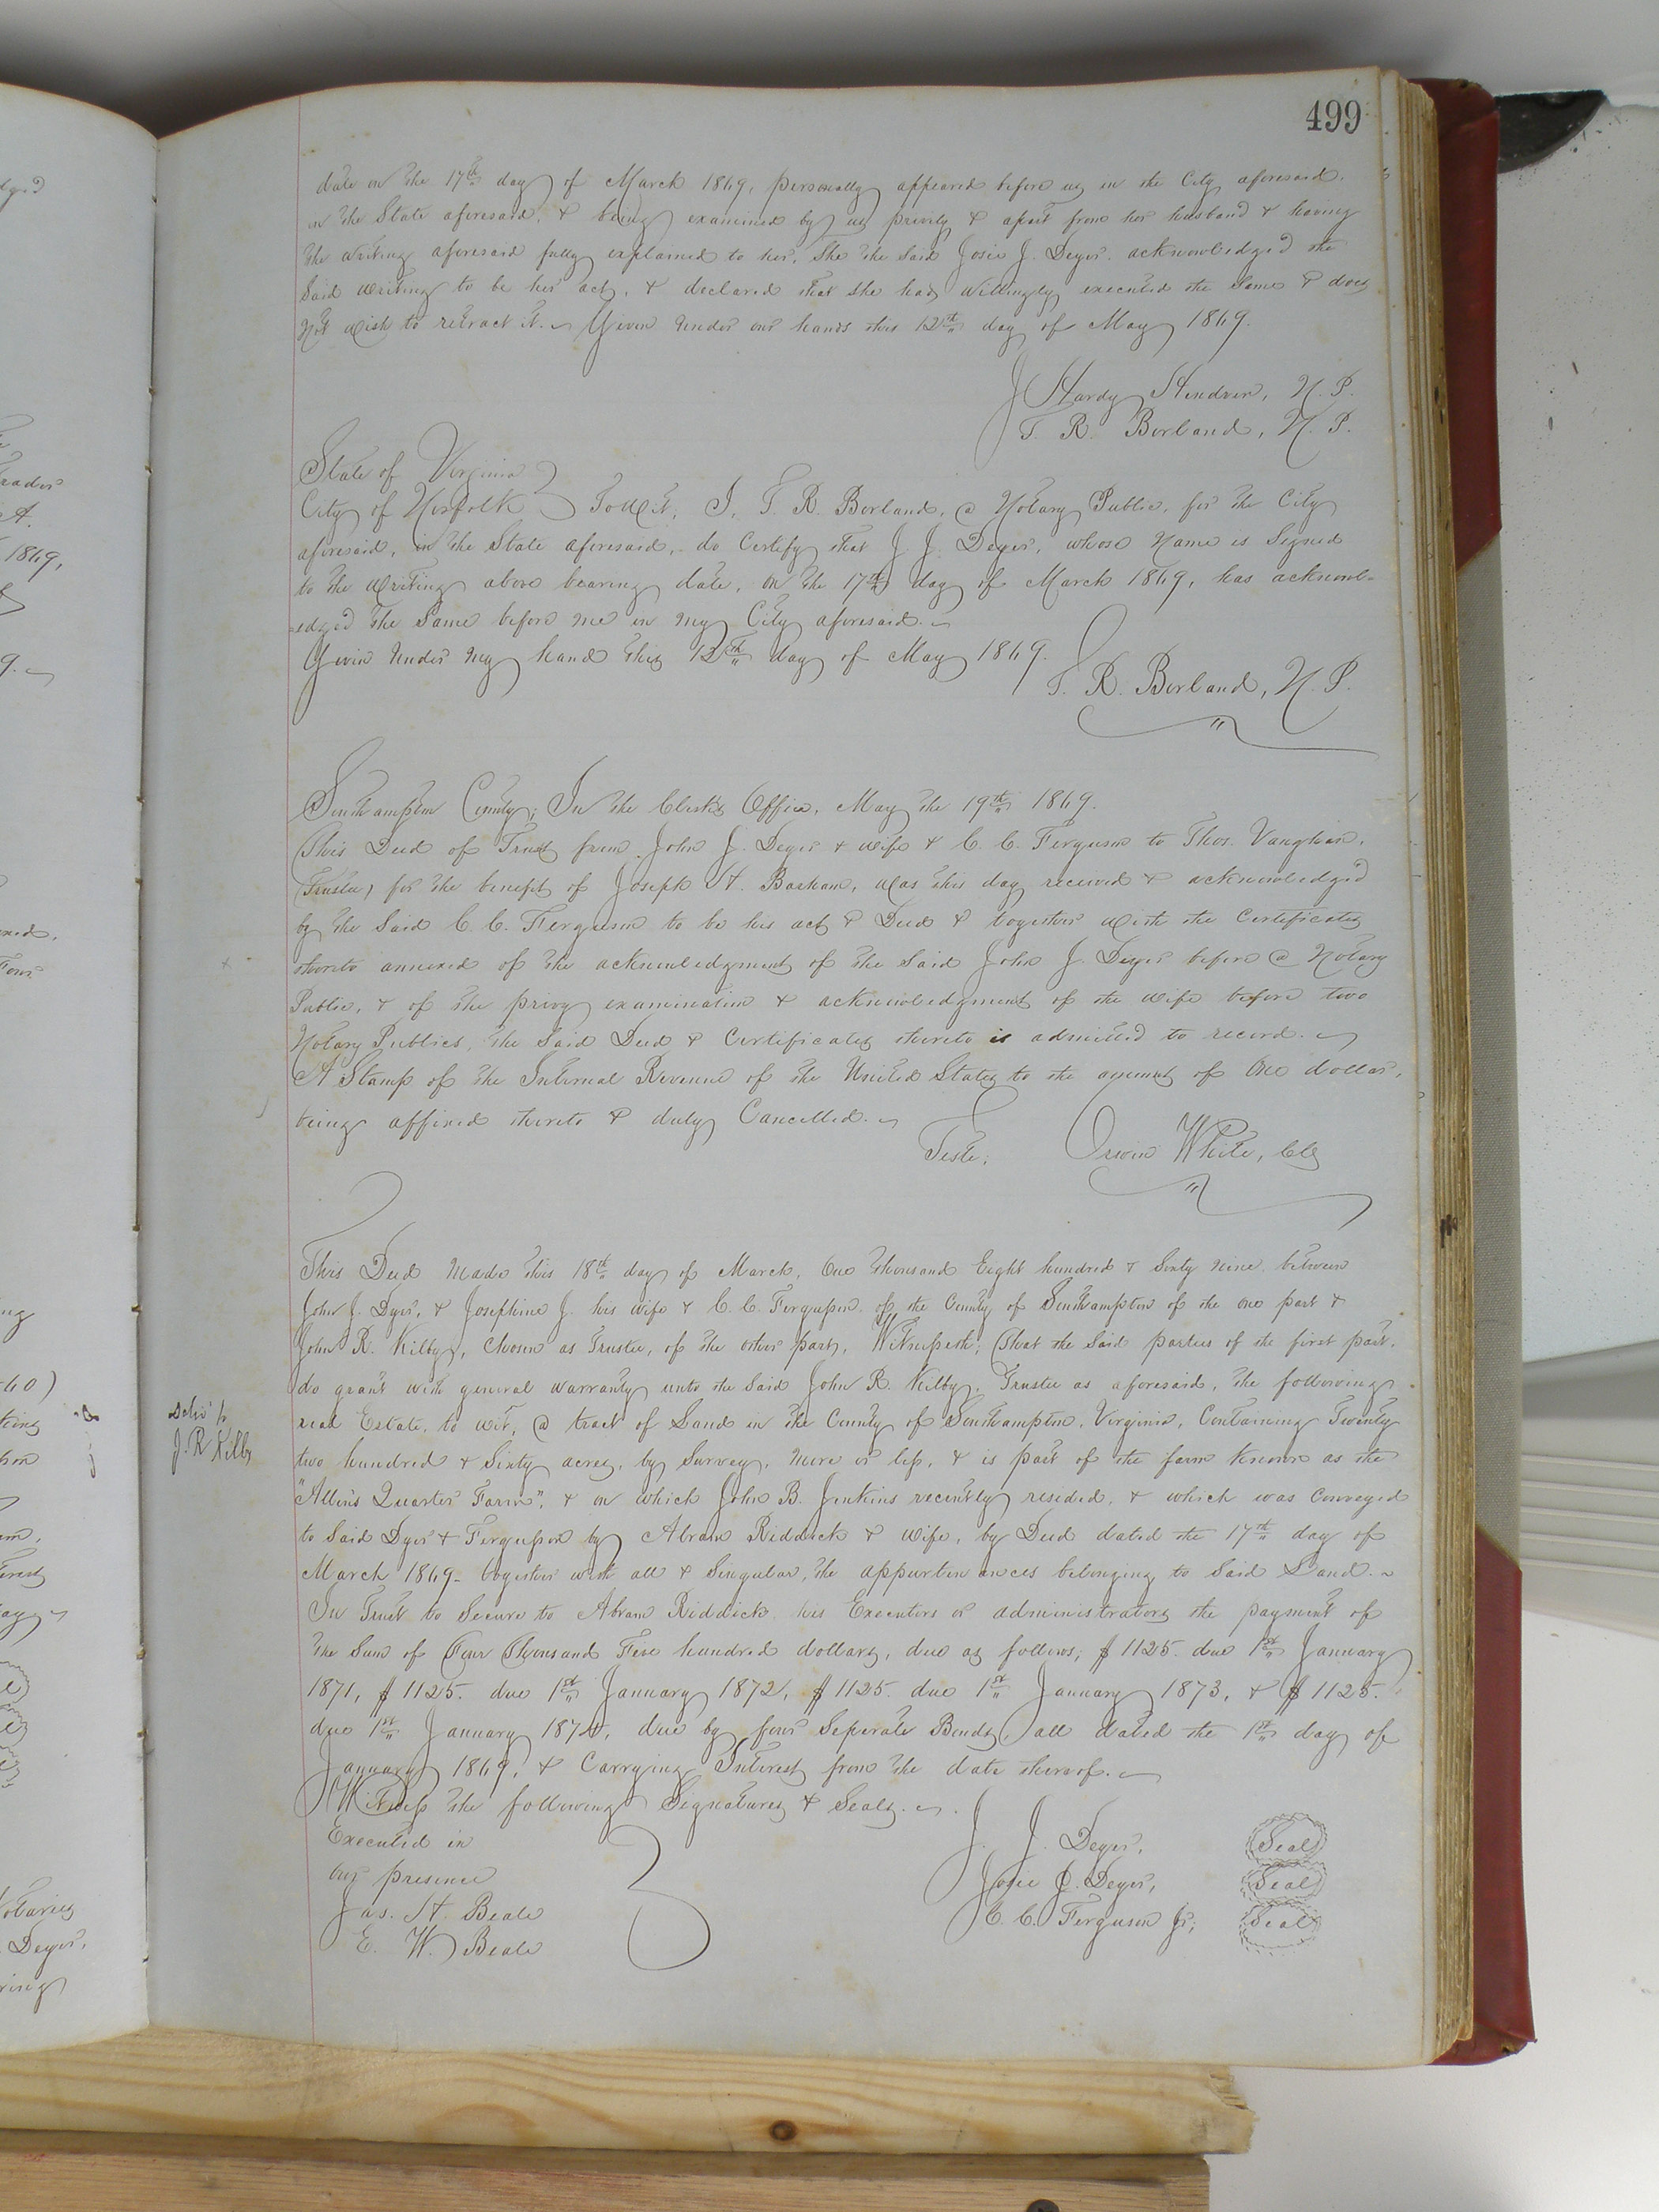 499
date on the 17th day of March 1869, personally appeared before us in the City aforesaid.
in the State aforesaid, & being examined by us privily & apart from her husband & having
the writing aforesaid fully explained to her, She the said Josie J. Dyer. acknowledged the
Said writing to be her act, & declared that she had willingly executed the same & does
Not wish to retract it. Given under our hands this 12th day of May 1869.
J Hardy Hendren, N. P.
T. R. Borland, N. P.
State of Virginia
City of Norfolk Towit; I, T. R. Borland, a Notary Public, for the City
aforesaid, in the State aforesaid, do Certify that J J. Dyer, whose Name is Signed
to the writing above bearing date, on the 17th day of March 1869, has acknowl-
=edged the Same before me in my City aforesaid.
Given under my hand this 12th day of May 1869.
T. R. Borland, N. P.
Southampton County; In the Clerk's Office, May the 19th 1869.
This Deed of Trust from John J. Dyer & wife & C. C. Ferguson to Thos. Vaughan,
Trustee, for the benefit of Joseph H. Barham, was this day received & acknowledged
by the Said C. C. Ferguson to be his act & Deed & together with the Certificates
thereto annexed of the acknowledgment of the Said John J. Dyer before a Notary
Public, & of the privy examination & acknowledgment of the wife before two
Notary Publics, the Said Deed & Certificates thereto is admitted to record.
A Stamp of the Internal Revenue of the United States to the amount of One dollar,
being affixed thereto & duly Cancelled.
Teste; White, Clk
This Deed Made this 18th day of March, One thousand Eight hundred & Sixty nine, between
John J. Dyer, & Josephine J. his wife & C. C. Ferguson. of the County of Southampton of the one part &
John R. Kilby, chosen as Trustee, of the other part, Witnesseth; That the Said parties of the first part,
do grant with general warranty unto the Said John R. Kilby, Trustee as aforesaid, the following
real Estate, to wit, a tract of Land in the County of Southampton, Virginia, Containing Twenty
Deliv'd to
J. R Kilby
two hundred & Sixty acres, by Survey, more or less, & is part of the farm known as the
"Allen's Quarter Farm", & on which John B. Jenkins recently resided, & which was Conveyed
to Said Dyer & Ferguson by Abram Riddick & wife, by Deed dated the 17th day of
March 1869- together with all & Singular, the appurtenances belonging to Said Land.
In Trust to Secure to Abram Riddick his Executors or administrators the payment of
the Sum of Four Thousand Five hundred dollars, due as follows; $1125. due 1st January
1871, $1125. due 1st January 1872, $1125. due 1st January 1873, & $1125.
due 1st January 1874, due by four Seperate Bonds, all dated the 1st day of
January 1869, & Carrying Interest from the date thereof.
Witness the following Signatures & Seals.
Executed in J. J. Dyer, Seal
Our presence Josie J. Dyer, Seal
Jas. H. Beale C. C. Ferguson Jr, Seal
E. W. Beale